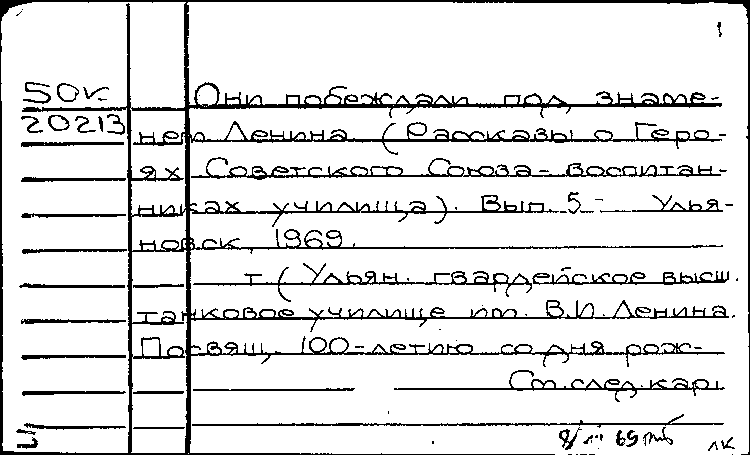 1
50к.
20213
Они побеждали под знаме-
нем Ленина. (Рассказы о Геро-
ях Советского Союза-воспитан-
никах училища). Вып. 5- Улья-
новск, 1969.
т (Ульян. гвардейское высш.
танковое училище им. В.И. Ленина.
Посвящ. 100-летию со дня рож-
См.след.карт.
69
лк